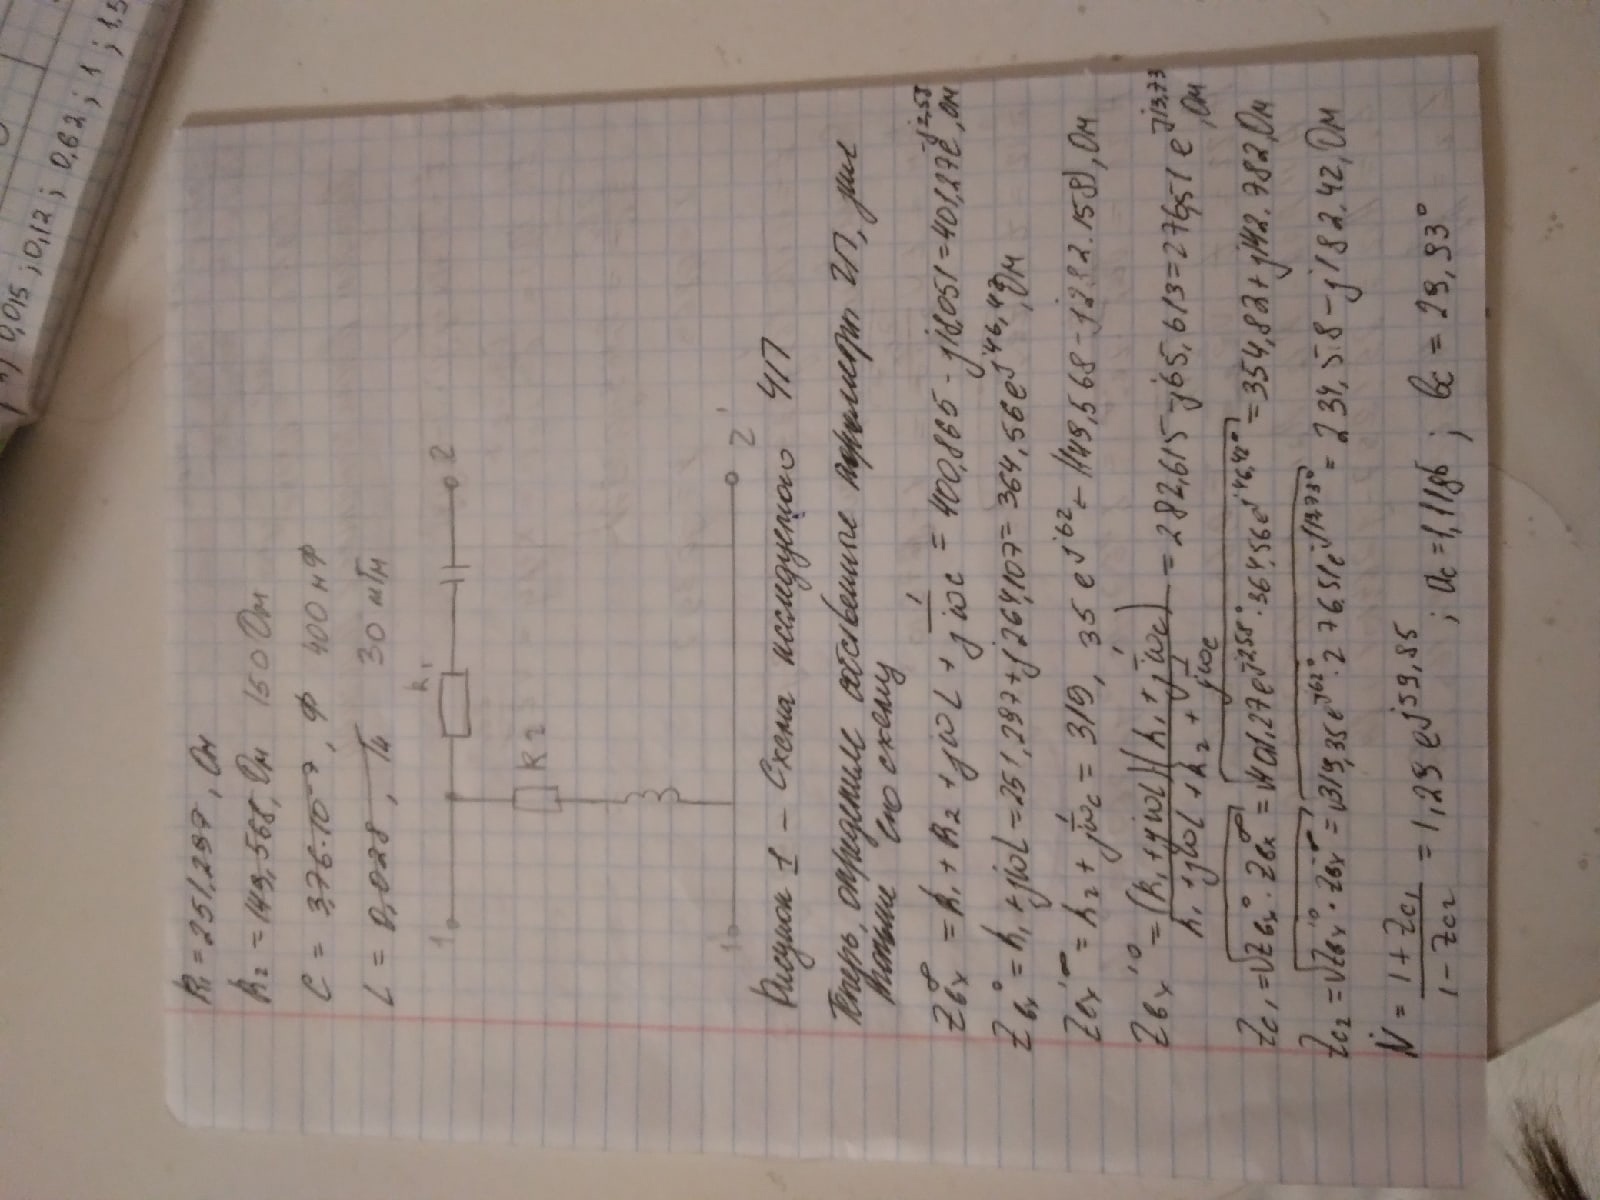 0,015 ; 0,12 ; 0,62 ; 1 ; 1.5
R₁ = 251,297, Ом
R₂ = 149,568, Ом 150 Ом
C = 3,76·10⁻⁷, Ф 400 нФ
L = 0,028, Гн 30 мГн
1 R₁ 2
R2
1' 2'
Рисунок 1 – Схема исследуемого ЧП
Теперь, определим собственные параметры ЧП, для
его схему
Zвх∞ = R₁ + R₂ + jωL + 1/jωC = 400,865 - j18051 = 401,27e^j2,58, Ом
Zвх⁰ = R₁ + jωL = 251,297 + j264,107 = 364,56e^j46,42°, Ом
Zвх'∞ = R₂ + 1/jωC = 319,35e^j62 = 149,568 - j282.158), Ом
Zвх'⁰ = (R₁ + jωL)(R₁ + 1/jωC) / R₁ + jωL + R₂ + 1/jωC = 282,615 - j65,613 = 276,51e^j13,73, Ом
Zc₁ = √Zвх⁰·Zвх∞ = √401,27e^j2,58°·364,56e^j46,42° = 354,82 + j142.782, Ом
Zc₂ = √Zвх'⁰·Zвх'∞ = √319,35e^j62°·276,51e^j13,73° = 234,58 - j182.42, Ом
N = 1 + Zc₁ / 1 - Zc₂ = 1,29e^j59,85 ; ac = 1,11дб ; bc = 29,93°